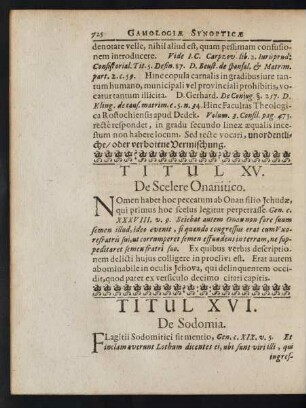 725 GAMOLOGIÆ SYNOPTICÆ
denotare velle, nihil aliud est, quam pessimam confusio-
nem introducere. Vide I.C. Carpzov. lib. 2. Iurisprud:
Consistorial. Tit. 5. Defin. 87. D. Beust. de sponsal. & Matrim.
part. 2. c. 59. Hinc copula carnalis in gradibus jure tan-
tum humano, municipali vel provinciali prohibitis, vo-
catur tantum illicita. D. Gerhard. De Coniug. §. 257. D.
Kling. de caus. matrim. c. 5. n. 34. Hinc Facultas Theologi-
ca Rostochiensis apud Dedek. Volum. 3. Consil. pag. 473.
rectè respondet, in gradu secundo lineæ æqualis ince-
stum non habere locum. Sed recte vocari, unordentli-
che / oder verbotene Vermischung.
TITUL XV.
De Scelere Onanitico.
NOmen habet hoc peccatum ab Onan filio Jehudæ,
qui primus hoc scelus legitur perpetrasse Gen. c.
XXXVIII. v. 9. Sciebat autem Onan non fore suum
semen illud, ideo evenit, si quando congressus erat cum Vxo-
re fratris sui, ut corrumperet semen effundens in terram, ne sup-
peditaret semen fratri suo. Ex quibus verbis descriptio-
nem delicti hujus colligere in proclivi est. Erat autem
abominabile in oculis Jehova, qui delinquentem occi-
dit, quod patet ex versiculo decimo citati capitis.
TITUL XVI.
De Sodomia.
FLagitii Sodomitici sit mentio, Gen. c. XIX. v. 5. Et
inclamaverunt Lothum dicentes ei, ubi sunt viri illi, qui
ingres-